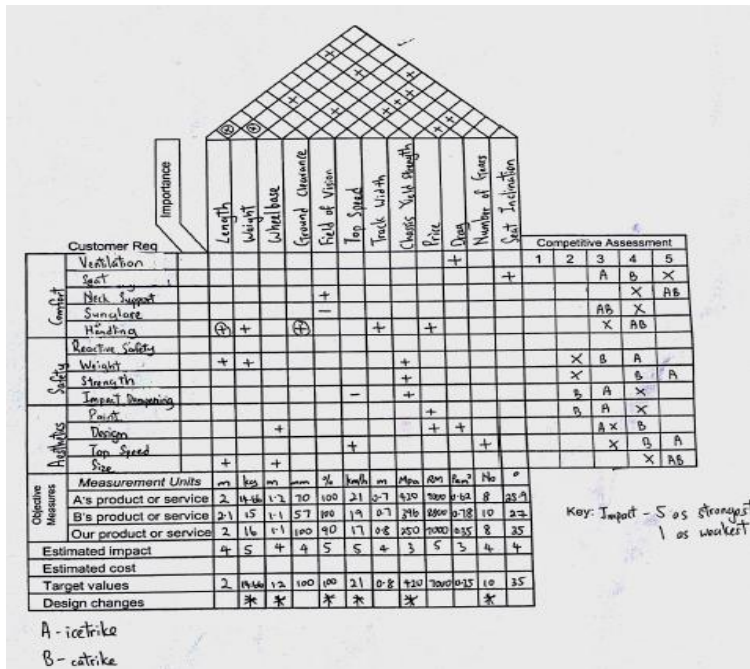 Importance
Length
Weight
Wheelbase
Ground Clearance
Field of Vision
Top Speed
Track Width
Chassis Yield Strength
Price
Drag
Number of Gears
Seat Inclination
Customer Req
Competitive Assessment
1 2 3 4 5
Comfort
Ventilation +
Seat + A B X
Neck Support + X AB
Sunglare - AB X
Handling ⊕ + ⊕ + + X AB
Safety
Reactive Safety
Weight + + + X B A
Strength + X B A
Impact Dampening - + B A X
Aesthetics
Paint + B A X
Design + + + A X B
Top Speed + + X B A
Size + + X AB
Objective Measures
Measurement Units m kg m mm % km/h m Mpa RM No °
A's product or service 2 14.66 1.2 70 100 21 0.7 420 7000 0.62 8 25.9
B's product or service 2.1 15 1.1 57 100 19 0.7 396 8800 0.78 10 27
Our product or service 2 16 1.1 100 90 17 0.8 250 7000 0.35 8 35
Estimated impact 4 5 4 4 5 5 4 3 5 3 4 4
Estimated cost
Target values 2 14.66 1.2 100 100 21 0.8 420 7000 0.35 10 35
Design changes * * * * * *
Key: Impact - 5 as strongest
1 as weakest
A - icetrike
B - catrike